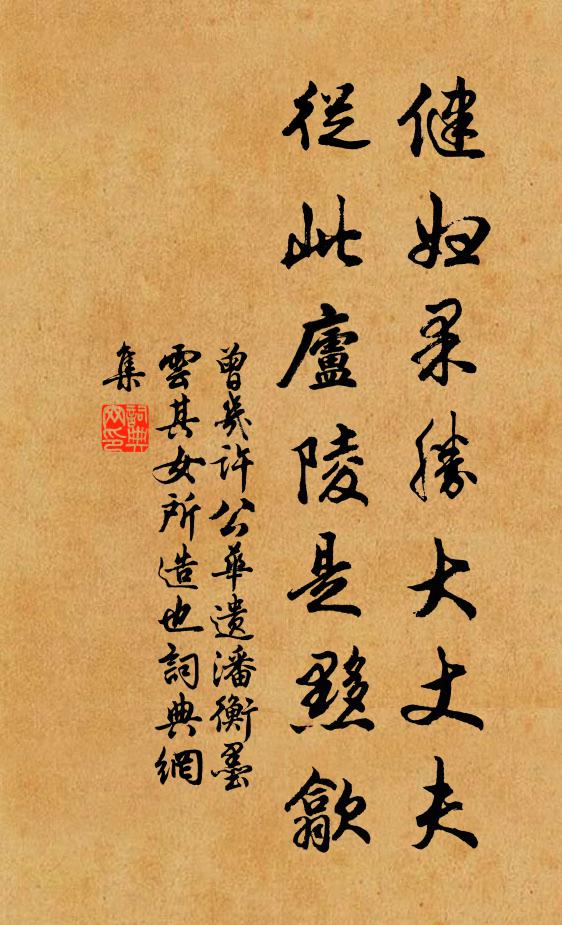 健婦果勝大丈夫
從此廬陵是黟歙
曾幾許公華遺潘衡墨
雲其女所造也詞典網
集
詞典網印